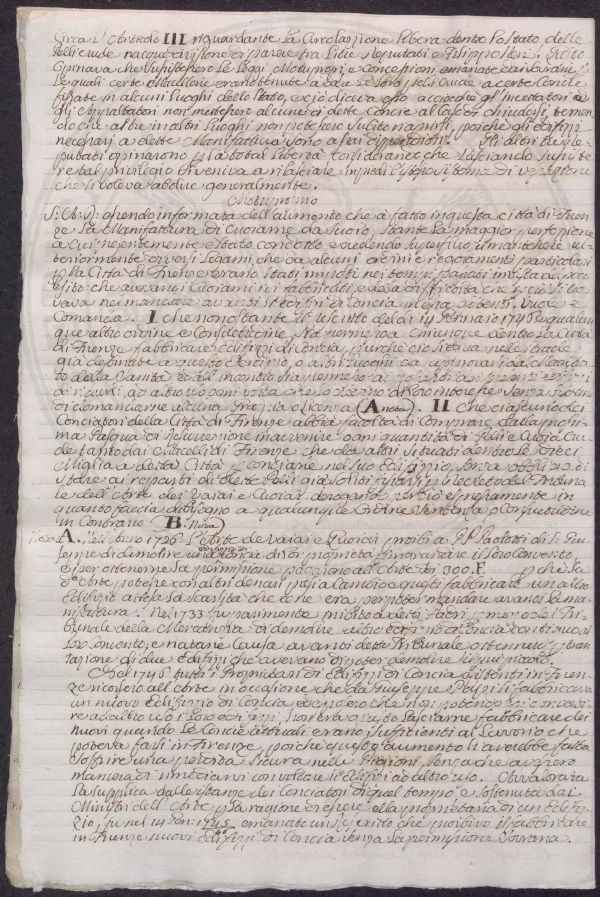 Circa l'Articolo III riguardante la Circolazione libera dento lo Stato delle
Pelli crude nacque divisione di parere tra li tre Deputati e Filippo
che sussistessero le Leggi, Motuproprj e Concessioni emanate
le quali certe erano tenute a dare i loro a certe Concie
situate in alcuni luoghi dello Stato, e ciò diceva acciocchè gl'Incettatori e
gli Appaltatori non mettessero alcune di dette Concie al caso di chiudersi, temen
do che altre in altri luoghi non potessero subito riaprirsi, perchè gli edifizj
necessarj a dette Manifatture sono assai dispendiosi. Gli altri tre De
putati opinarono p la total libertà considerando che lasciando sussiste
re tal privilegio si veniva a rilasciare in piedi l'istesso sistema di
che si voleva abolire generalmente.
Motuproprio
S. A. R. essendo informata dell'aumento che à fatto in questa città di Firen
ze la Manifattura di Cuoiame da Suolo, stante la maggior perfezione
a cui recentemente è stato condotto e vedendo superfluo il mantenere ul
teriormente diversi Legami, che da alcuni ordini e regolamenti particolari
p la Città di Firenze erano stati imposti nei tempi passati
che avevano i Cuoiami ivi fabbricati e la difficoltà che si tro
vava nel mandare avanti gli edifizj di Concia Vuole e
Comanda. I che nonostante il rescritto del dì 14 Gennaio 1745 e qualun
que altro ordine e Consuetudine sia permesso a chiunque dentro la Città
di Firenze fabbricare Edifizj di Concia, purchè ciò segua nelle strade
già destinate a questo esercizio, o altri luoghi da approvarsi dal Magistra
to della Sanità ed all'incontro sia permesso ai
ridurli ad altro uso ogni volta che lo credino di loro interesse senza
di domandarne alcuna Grazia o licenza (A nota). II Che ciascuno dei
Conciatori della Città di Firenze abbia facoltà di Comprare dalla prossi
ma Pasqua di Resurrezione in avvenire ogni quantità di Pelli e Cuoia Cru
de tanto dai Macelli di Firenze che da altri situati dentro le Dieci
Miglia a detta Città p conciarle nel suo Edifizio, senza obbligo di
stare ai reparti di dette Pelli già soliti farsi p decreto del Tribuna
le dell'Arte dei Vaiai e Cuoiai derogando perciò espressamente in
quanto faccia di bisogno a qualunque Ordine Sentenza o Consuetudine
in Contrario (B: Nota)
Nota A. Nell'Anno 1726 l'Arte de Vaiai e Cuoiai proibì a PP. Paolotti di S. Giu
seppe di demolire una Concia di lor proprietà p ingrandire il loro Convento,
e per ottenerne la permissione pagarono all'Arte 300. F. p che la
da Arte potesse con altri denari presi a Cambio a questi fabbricare un altro
Edifizio attesa la scarsità che ve ne era per poter mandare avanti la ma
nifattura. Nel 1733 fu parimente inibito a detti Padri p mezzo del Tri
bunale della Mercatura di demolire altro edifizio di Concia contiguo al
lor Convento, e natane Causa avanti detto Tribunale ottennero p tran
sazione di due Edifizj che avevano di poter demolire il più piccolo.
Nel 1745 tutti i Proprietarj di Edifizj di Concia esistenti in Firen
ze ricorsero all'Arte in occasione che da Giuseppe si fabbricava
un nuovo Edifizio di Concia ed esposero che non potendo essi conver
tire ad altro uso i loro edifizj, non era giusto lasciarne fabbricare dei
nuovi quando le Concie attuali erano sufficienti al Lavorio che
poteva farsi in Firenze, poichè questo aumento li averebbe fatto
soffrire una perdita sicura nelle Pigioni, senza che avessero
maniera di rimediarvi con voltare li Edifizj ad altro uso. Avvalorata
la supplica dalle istanze dei Conciatori di quel tempo e sostenuta dai
Ministri dell'Arte p la ragione di essere ella proprietaria di un Edifi
zio, fu nel 14 Gen: 1745 emanato un rescritto che proibiva il fabbricare
in Firenze nuovi Edifizj di Concia senza la permissione Sovrana.